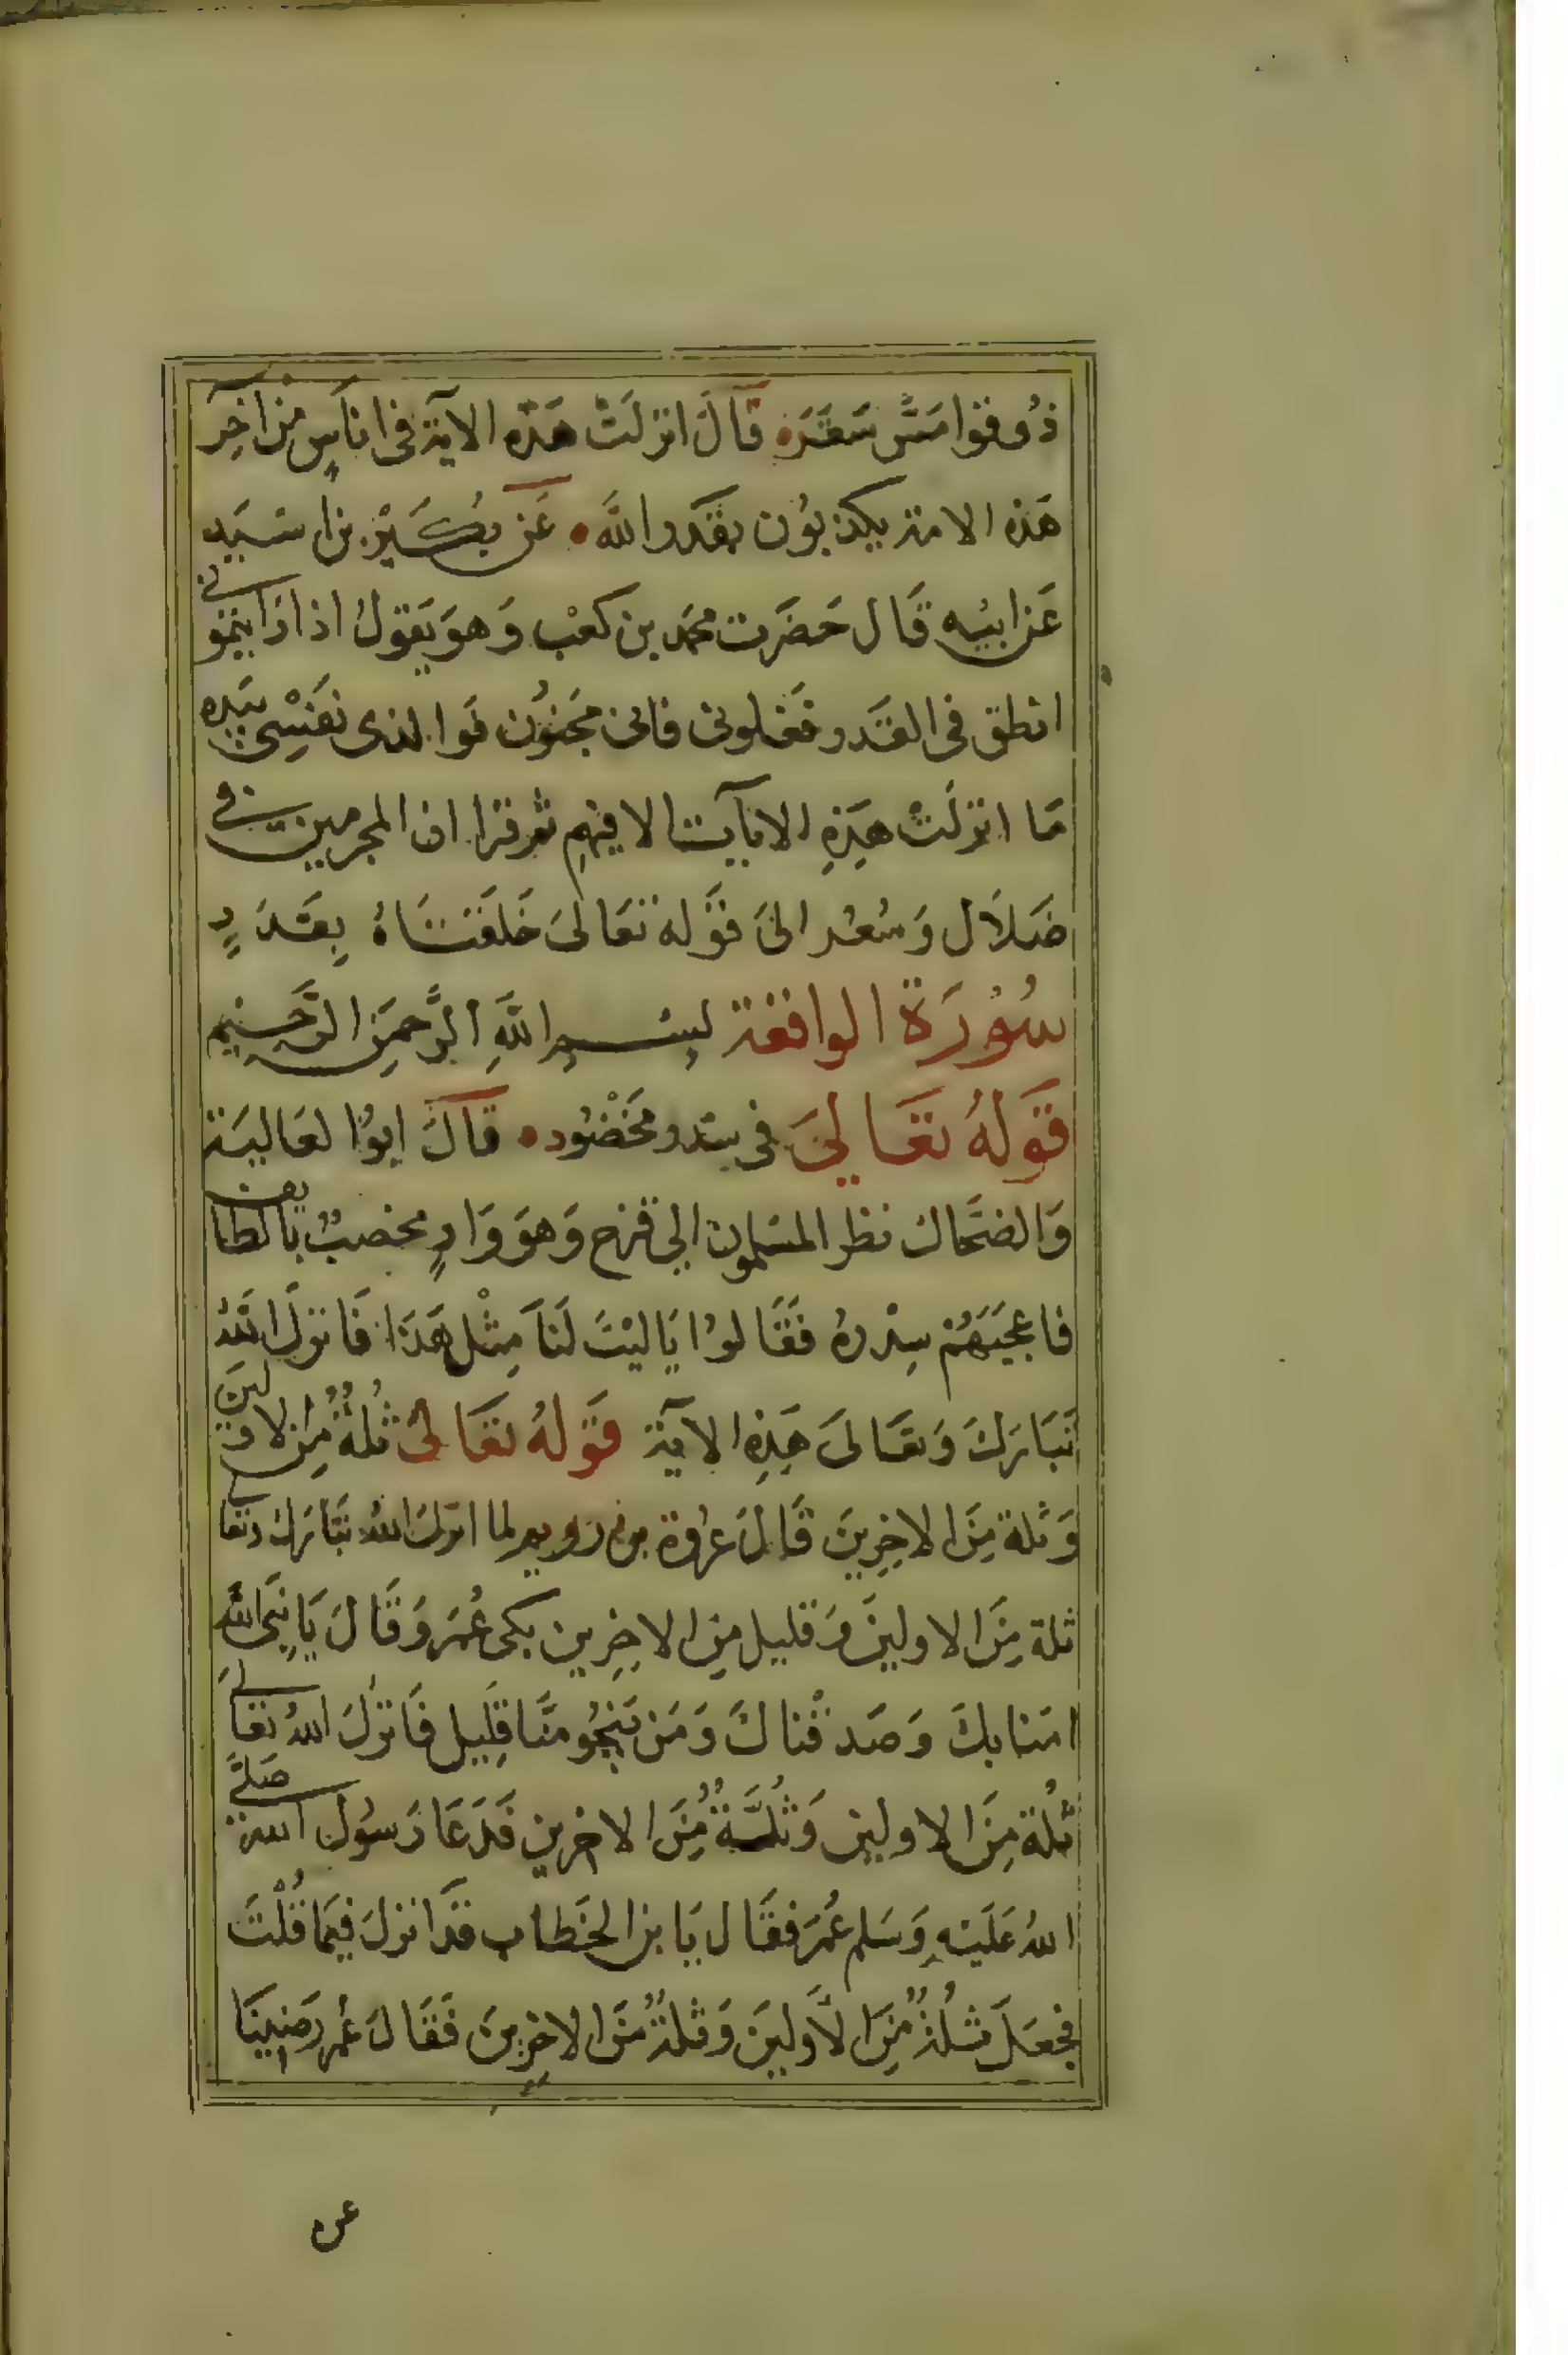 ذُوقوا مَسَّ سَقَرَ قَالَ انزلَتْ هَذه الآية فى اناسٍ من اخِر
هَذه الامة يكذبوُن بقَدر اللهَ عَن بُكَيْر بن اسَيد
عَن ابيْه قَال حَضَرت محمد بن كعْب وَهوَ يَقولُ اذا رَايتمُونى
انطق فى القَدر فَغلونى فانى مجَنوُن فَوا لذى نفَسِْى بيَدِه
مَا انزلَتْ هَذِهِ الايآت الا فيهِم ثم قرا ان المجرمين فى
ضَلاَل وَسُعُر الىَ قَوَله تعَالىَ خَلقَنَاهُ بِقَدَرٍ
سُوُرَة الواقعة بِسْمِ اللَّهِ الرَّحمَنِ الرَّحِيْم
قَولهُ تعَالىَ فى سِدر مَخْضُود قالَ ابوُا لعَاليَة
وَالضحَّاك نظر المسَلمون الي فزح وَهوَ وَادٍ مخصبٌ بالطايف
فاعجبَهَمُ سِدْرهُ فَقَالوُا يَاليْتَ لَنَا مِثْل هَذَا فَانزلَ اللهُ
تَبَارَكَ وَتعَالىَ هَذِهِ الآية قَوَلهُ تعَالىَ ثُلةٌ مِّنَ الاولَين
وَثلة مِنَ الاخِرِينَ قَالَ عرُوة بن رويم لما انزلَ اللهُ تبَارَك وَتعَالى
ثلة مِنَ الاولينَ وَقليل مِن الاخِرِين بكى عُمَر وَقَالَ يَا نبِىَ اللهَ
امَنا بكَ وَصَدقْناكَ وَمَن يَنجُو مِنَّا قِليل فَانزلَ اللهُ تعَالىَ
ثُلة مِنَ الاولين وَثُلَّةٌ مِّنَ الاخرين فَدَعَا رَسوُل الله صَلى
اللهُ عَلَيْهِ وَسَلم عُمَر فقَال يَا بن الخَطاب قَد انزلَ فيَمَا قُلْتَ
فجعَلَ ثُلةٌ مِّنَ الاَولينَ وَثلةٌ مّنَ الاخِرِينَ فَقَالَ عُمر رَضيِنَا
عن